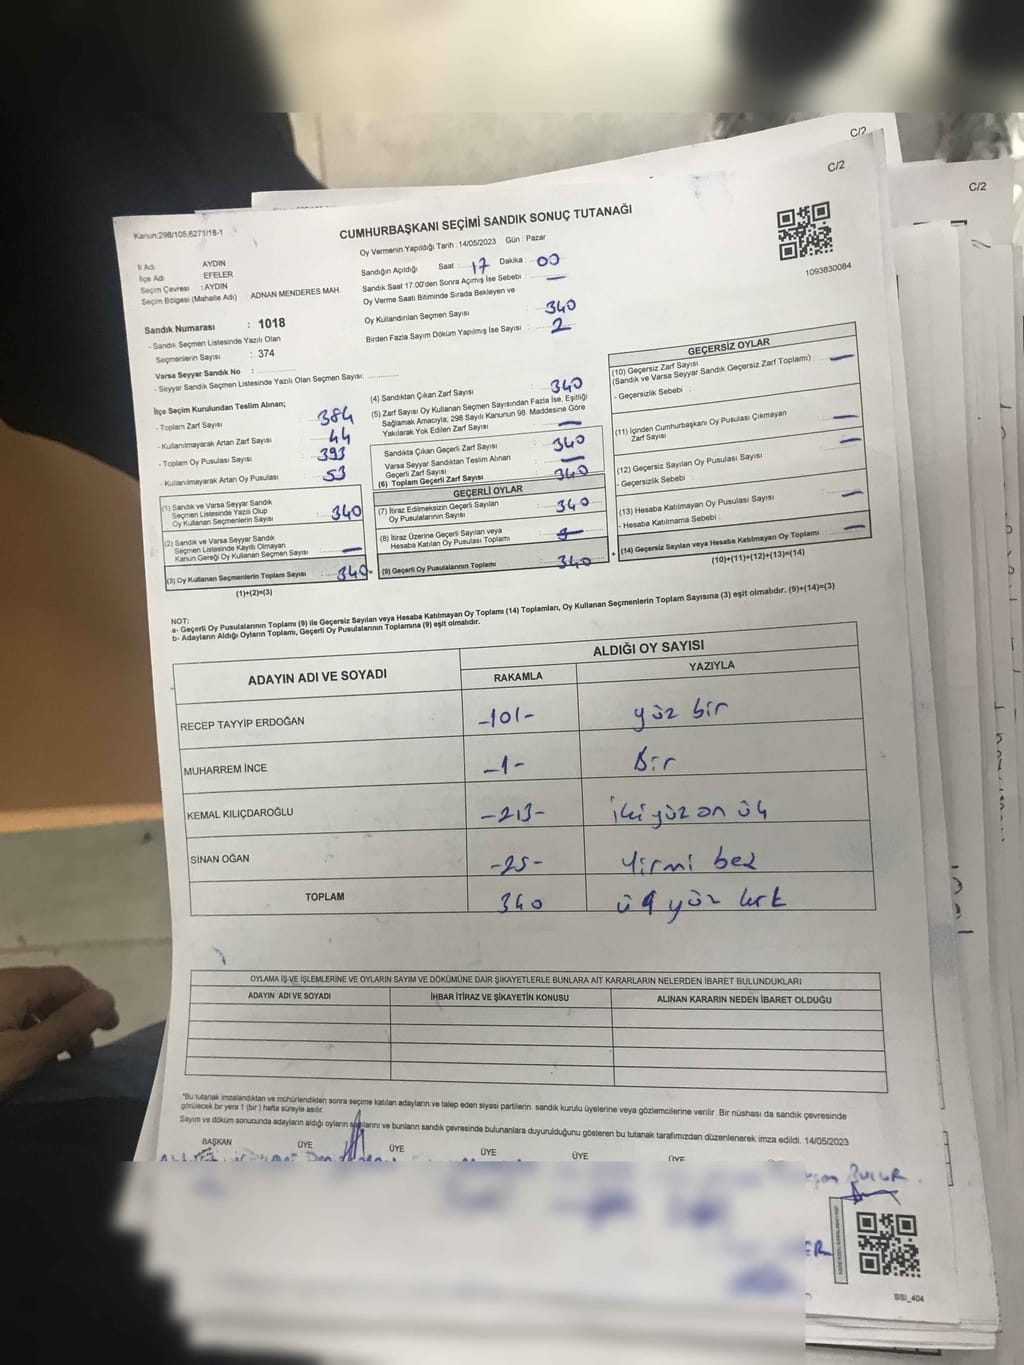 C/2
C/2
C/2
Kanun:298/105,6271/18-1
CUMHURBAŞKANI SEÇİMİ SANDIK SONUÇ TUTANAĞI
Oy Vermenin Yapıldığı Tarih : 14/05/2023 Gün : Pazar
1093830084
İl Adı AYDIN
İlçe Adı : EFELER
Seçim Çevresi : AYDIN
Seçim Bölgesi (Mahalle Adı) ADNAN MENDERES MAH.
Sandığın Açıldığı Saat : 17 Dakika : 00
Sandık Saat 17:00'den Sonra Açımış İse Sebebi : —
Oy Verme Saati Bitiminde Sırada Bekleyen ve
Oy Kullandırılan Seçmen Sayısı : 340
Birden Fazla Sayım Döküm Yapılmış İse Sayısı : 2
Sandık Numarası : 1018
- Sandık Seçmen Listesinde Yazılı Olan
Seçmenlerin Sayısı : 374
Varsa Seyyar Sandık No :
- Seyyar Sandık Seçmen Listesinde Yazılı Olan Seçmen Sayısı:
İlçe Seçim Kurulundan Teslim Alınan;
- Toplam Zarf Sayısı : 384
- Kullanılmayarak Artan Zarf Sayısı : 44
- Toplam Oy Pusulası Sayısı : 393
- Kullanılmayarak Artan Oy Pusulası : 53
(1) Sandık ve Varsa Seyyar Sandık
Seçmen Listesinde Yazılı Olup
Oy Kullanan Seçmenlerin Sayısı : 340
(2) Sandık ve Varsa Seyyar Sandık
Seçmen Listesinde Kayıtlı Olmayan
Kanun Gereği Oy Kullanan Seçmen Sayısı : —
(3) Oy Kullanan Seçmenlerin Toplam Sayısı : 340
(1)+(2)=(3)
=
(4) Sandıktan Çıkan Zarf Sayısı : 340
(5) Zarf Sayısı Oy Kullanan Seçmen Sayısından Fazla İse, Eşitliği
Sağlamak Amacıyla; 298 Sayılı Kanunun 98. Maddesine Göre
Yakılarak Yok Edilen Zarf Sayısı : —
Sandıkta Çıkan Geçerli Zarf Sayısı : 340
Varsa Seyyar Sandıktan Teslim Alınan
Geçerli Zarf Sayısı : —
(6) Toplam Geçerli Zarf Sayısı : 340
GEÇERLİ OYLAR
(7) İtiraz Edilmeksizin Geçerli Sayılan
Oy Pusulalarının Sayısı : 340
(8) İtiraz Üzerine Geçerli Sayılan veya
Hesaba Katılan Oy Pusulası Toplamı :
(9) Geçerli Oy Pusulalarının Toplamı : 340
+
GEÇERSİZ OYLAR
(10) Geçersiz Zarf Sayısı
(Sandık ve Varsa Seyyar Sandık Geçersiz Zarf Toplamı) : —
- Geçersizlik Sebebi :
(11) İçinden Cumhurbaşkanı Oy Pusulası Çıkmayan
Zarf Sayısı : —
(12) Geçersiz Sayılan Oy Pusulası Sayısı : —
- Geçersizlik Sebebi :
(13) Hesaba Katılmayan Oy Pusulası Sayısı : —
- Hesaba Katılmama Sebebi :
(14) Geçersiz Sayılan veya Hesaba Katılmayan Oy Toplamı : —
(10)+(11)+(12)+(13)=(14)
NOT:
a- Geçerli Oy Pusulalarının Toplamı (9) ile Geçersiz Sayılan veya Hesaba Katılmayan Oy Toplamı (14) Toplamları, Oy Kullanan Seçmenlerin Toplam Sayısına (3) eşit olmalıdır. (9)+(14)=(3)
b- Adayların Aldığı Oyların Toplamı, Geçerli Oy Pusulalarının Toplamına (9) eşit olmalıdır.
ADAYIN ADI VE SOYADI ALDIĞI OY SAYISI
RAKAMLA YAZIYLA
RECEP TAYYİP ERDOĞAN -101- yüz bir
MUHARREM İNCE -1- Bir
KEMAL KILIÇDAROĞLU -213- iki yüz on üç
SİNAN OĞAN -25- Yirmi beş
TOPLAM 340 üç yüz kırk
OYLAMA İŞ VE İŞLEMLERİNE VE OYLARIN SAYIM VE DÖKÜMÜNE DAİR ŞİKAYETLERLE BUNLARA AİT KARARLARIN NELERDEN İBARET BULUNDUKLARI
ADAYIN ADI VE SOYADI İHBAR İTİRAZ VE ŞİKAYETİN KONUSU ALINAN KARARIN NEDEN İBARET OLDUĞU
*Bu tutanak imzalandıktan ve mühürlendikten sonra seçime katılan adayların ve talep eden siyasi partilerin sandık kurulu üyelerine veya gözlemcilerine verilir. Bir nüshası da sandık çevresinde
görülecek bir yere 1 (bir ) hafta süreyle asılır.
Sayım ve döküm sonucunda adayların aldığı oyların sayılarını ve bunların sandık çevresinde bulunanlara duyurulduğunu gösteren bu tutanak tarafımızdan düzenlenerek imza edildi. 14/05/2023
BAŞKAN ÜYE ÜYE ÜYE ÜYE ÜYE
BULUR
SSI_404